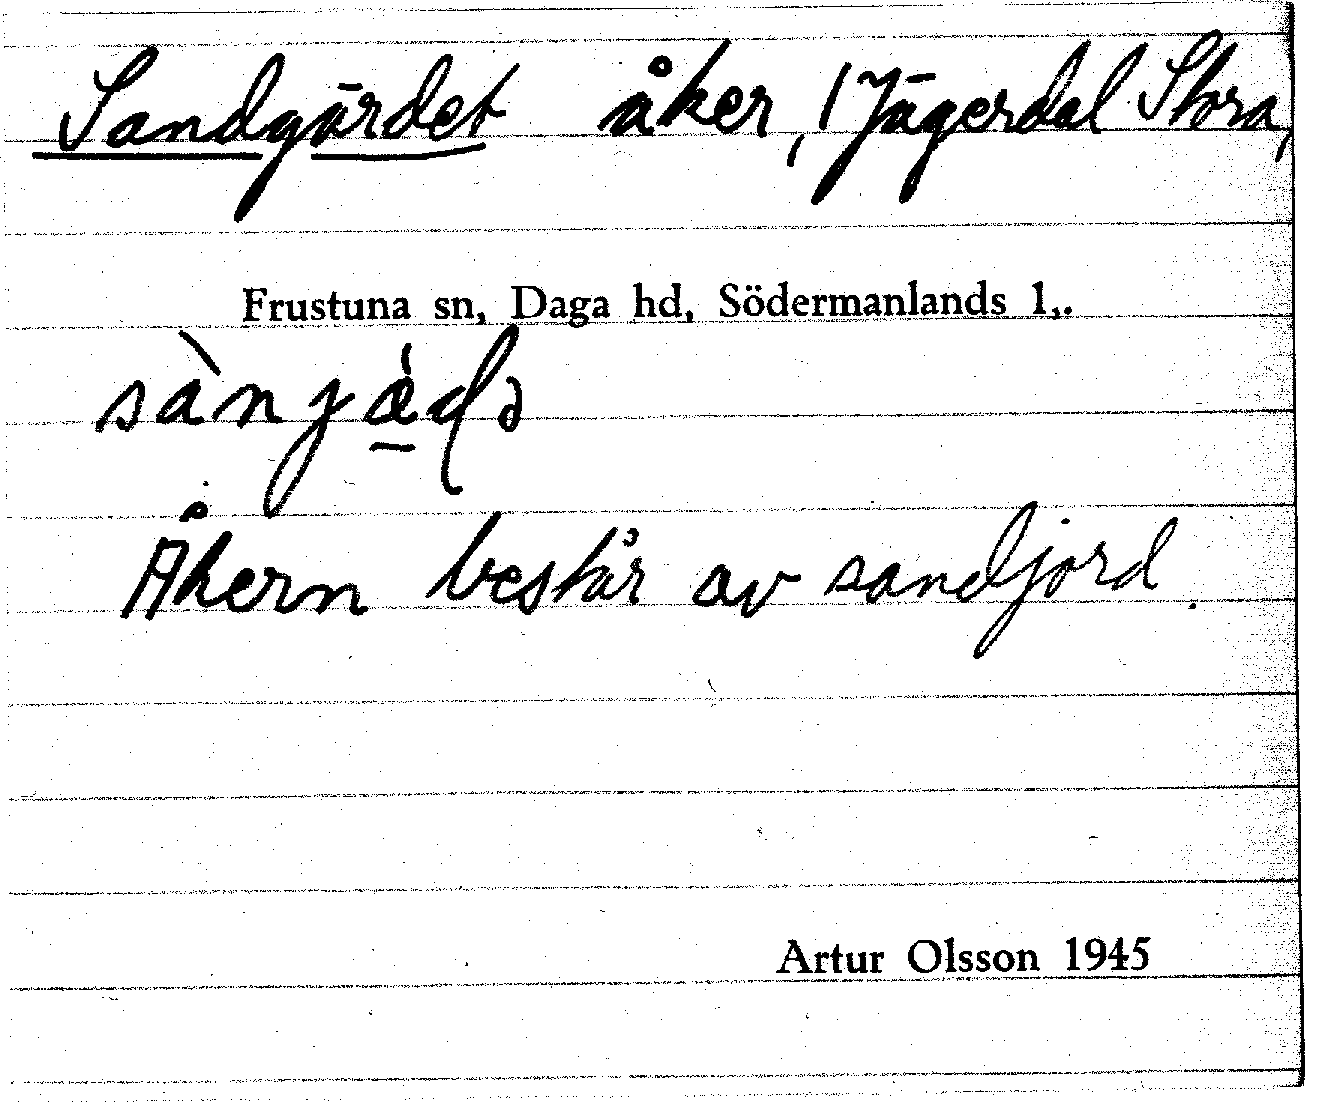 Sandgärdet åker, / Jägerdal Stora,
Frustuna sn, Daga hd, Södermanlands l,.
Åkern består av sandjord.
Artur Olsson 1945